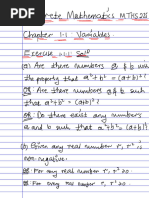 Discrete Mathematics MTHS225
Chapter 1.1: Variables
Exercise 1.1.1 Soln
(a) Are there numbers a & b such
the property that a²+b² = (a+b)²?
OR Are there numbers a & b such
that a²+b² = (a+b)²?
OR Do there exist any numbers
a and b such that a²+b² = (a+b)²?
(b) Given any real number r, r² is
non-negative.
OR For any real number r, r²≥0
OR For every real number r, r²≥0